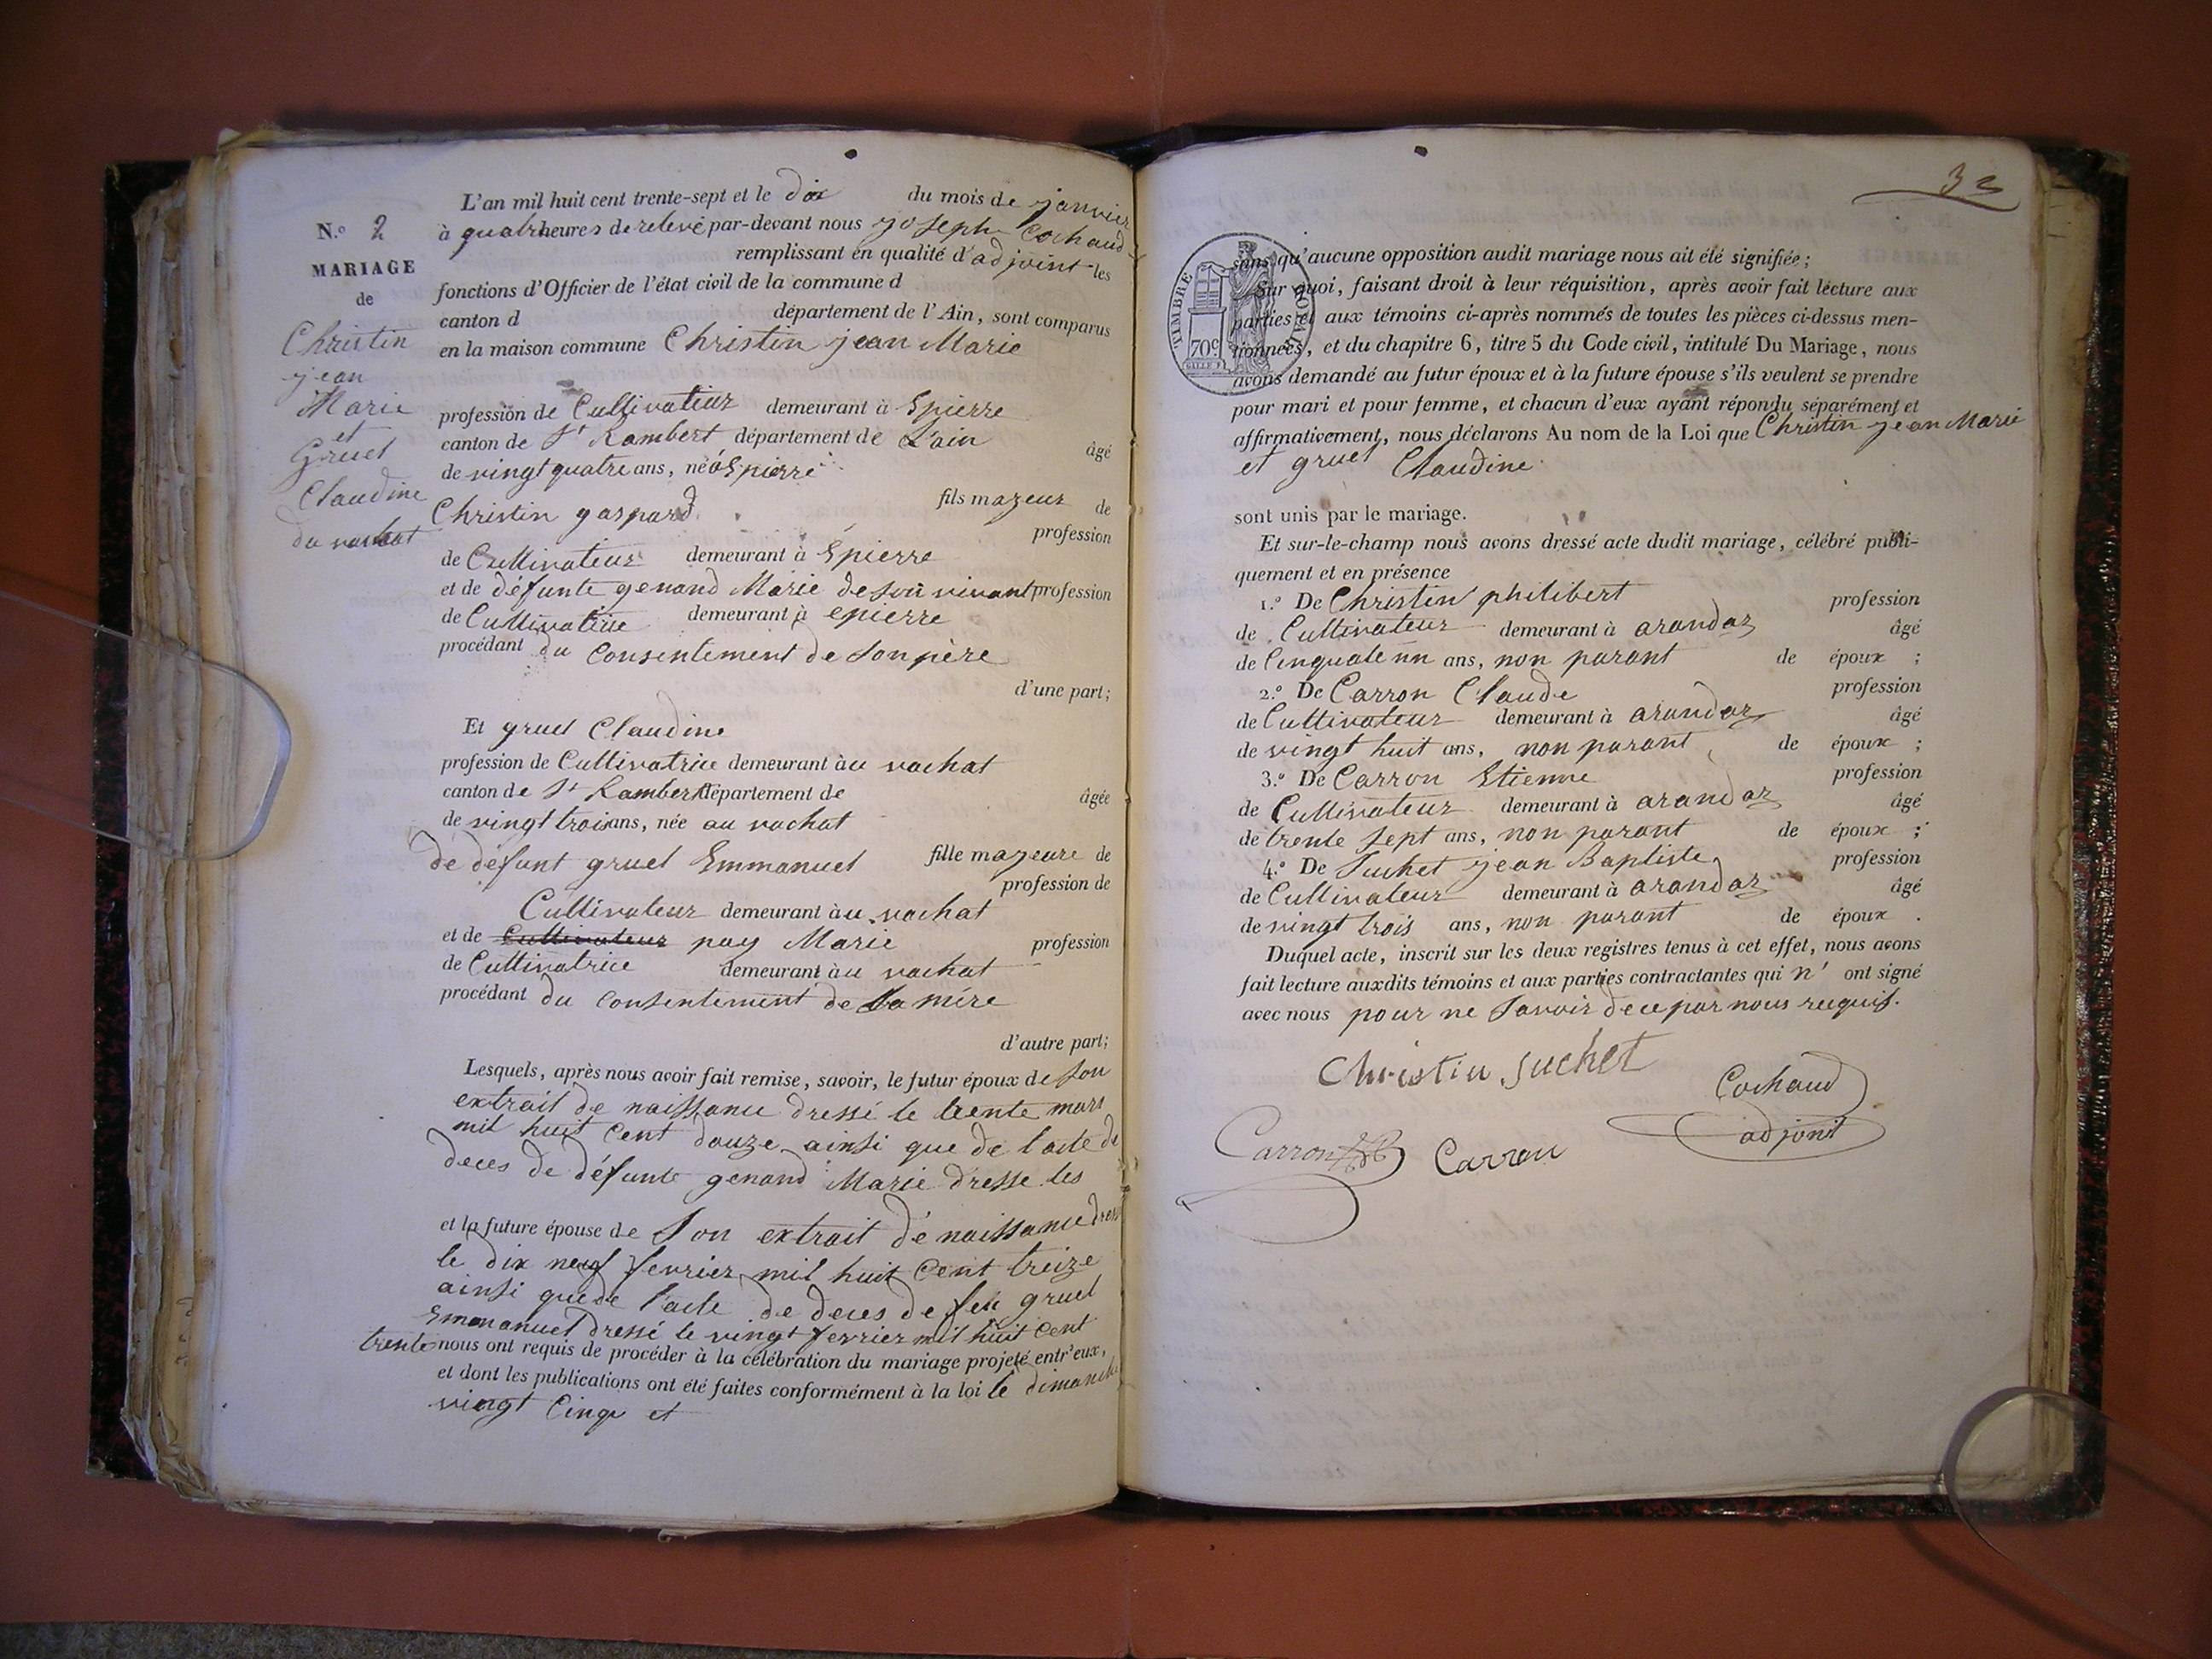 L'an mil huit cent trente-sept et le dix du mois de janvier
à quatr heures de relevé par-devant nous joseph Cochaud
remplissant en qualité d'adjoint les
fonctions d'Officier de l'état civil de la commune d
canton d département de l'Ain, sont comparus
en la maison commune Christin jean Marie
profession de Cultivateur demeurant à Epierre
canton de St Rambert département de L'ain âgé
de vingt quatre ans, né à Epierre
fils mageur de
Christin gaspard profession
de Cultivateur demeurant à Epierre
et de défunte genand Marie de son vivant profession
de Cultivatrice demeurant à epierre
procédant du Consentement de Son père
d'une part;
Et gruel Claudine
profession de Cultivatrice demeurant àu vachat
canton de St Rambert département de âgée
de vingt trois ans, née au vachat
fille mageure de
de défunt gruel Emmanuel profession de
Cultivateur demeurant àu vachat
et de Cultivateur pay Marie profession
de Cultivatrice demeurant àu vachat
procédant du Consentement de Sa mère
d'autre part;
Lesquels, après nous avoir fait remise, savoir, le futur époux de Son
extrait de naissance dressé le trente mars
mil huit Cent douze ainsi que de l'acte de
deces de défunte genand Marie dresse les
et la future épouse de Son extrait de naissance
le dix neuf fevrier mil huit Cent treize
ainsi que de l'acte de deces de feu gruel
Emmanuel dressé le vingt fevrier mil huit Cent
trente nous ont requis de procéder à la célébration du mariage projeté entr'eux,
et dont les publications ont été faites conformément à la loi le dimanche
vingt Cinq et
N.º 2
MARIAGE
de
Christin
jean
Marie
et
Gruel
Claudine
du vachat
32
TIMBRE ROYAL
70c
sans qu'aucune opposition audit mariage nous ait été signifiée;
Sur quoi, faisant droit à leur réquisition, après avoir fait lecture aux
parties et aux témoins ci-après nommés de toutes les pièces ci-dessus men-
tionnées, et du chapitre 6, titre 5 du Code civil, intitulé Du Mariage, nous
avons demandé au futur époux et à la future épouse s'ils veulent se prendre
pour mari et pour femme, et chacun d'eux ayant répondu séparément et
affirmativement, nous déclarons Au nom de la Loi que Christin jean Marie
et gruel Claudine
sont unis par le mariage.
Et sur-le-champ nous avons dressé acte dudit mariage, célébré publi-
quement et en présence
1.º De Christin philibert profession
de Cultivateur demeurant à arandaz âgé
de Cinquate un ans, non parant de époux ;
2.º De Carron Claude profession
de Cultivateur demeurant à arandaz âgé
de vingt huit ans, non parant de époux ;
3.º De Carron Etienne profession
de Cultivateur demeurant à arandaz âgé
de trente Sept ans, non parant de époux ;
4.º De Suchet jean Baptiste profession
de Cultivateur demeurant à arandaz âgé
de vingt trois ans, non parant de époux .
Duquel acte, inscrit sur les deux registres tenus à cet effet, nous avons
fait lecture auxdits témoins et aux parties contractantes qui n' ont signé
avec nous pour ne Savoir de ce par nous requis.
Christin Suchet
Cochaud
adjoint
Carron Carron